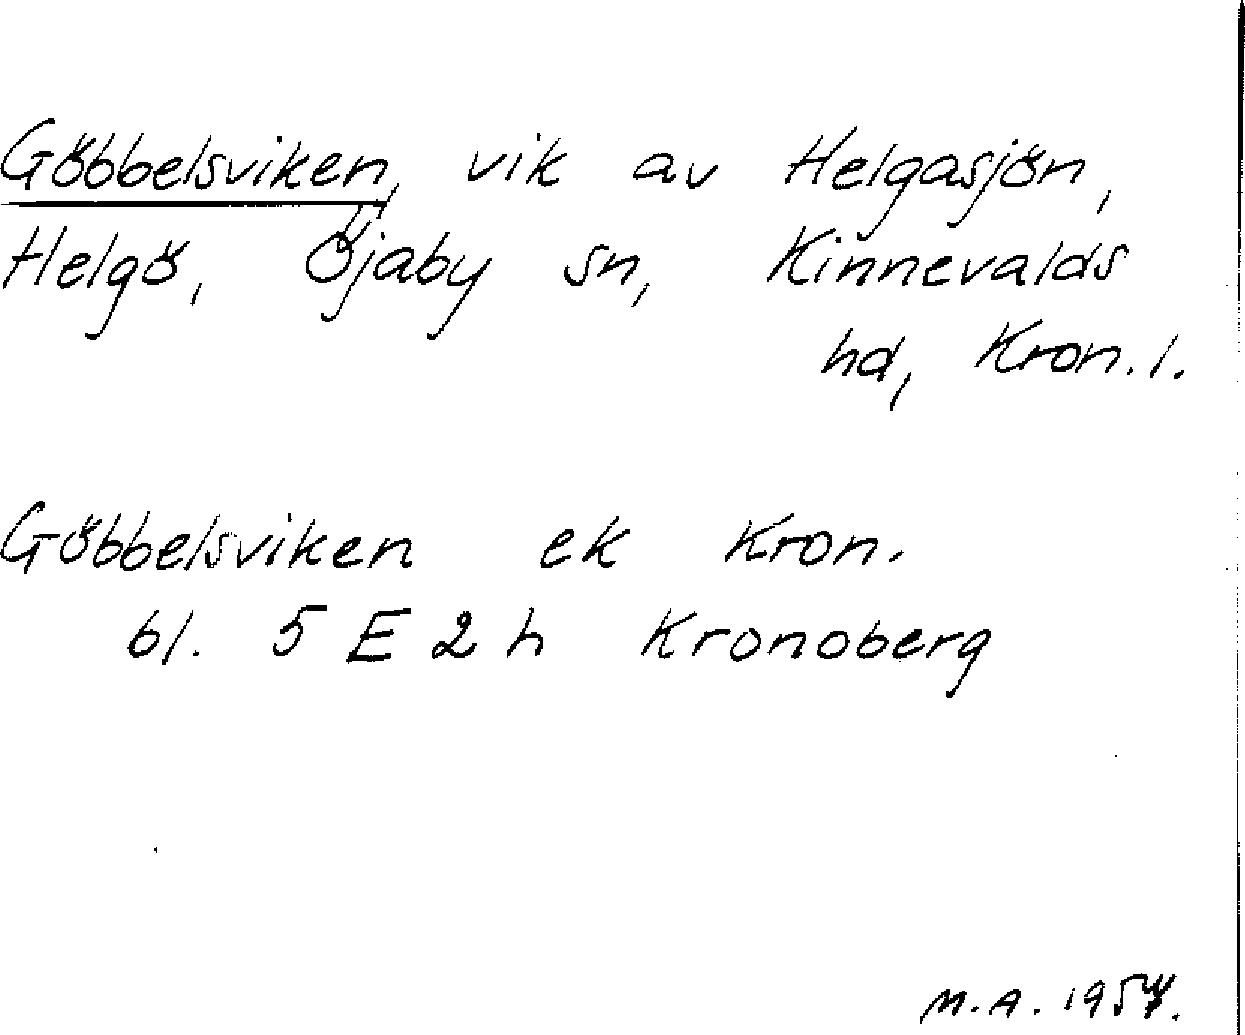 Göbbelsviken, vik av Helgasjön,
Helgö, Öjaby sn, Kinnevalds
hd, Kron. l.
Göbbelsviken ek Kron.
bl. 5 E 2 h Kronoberg
M.A. 1954.